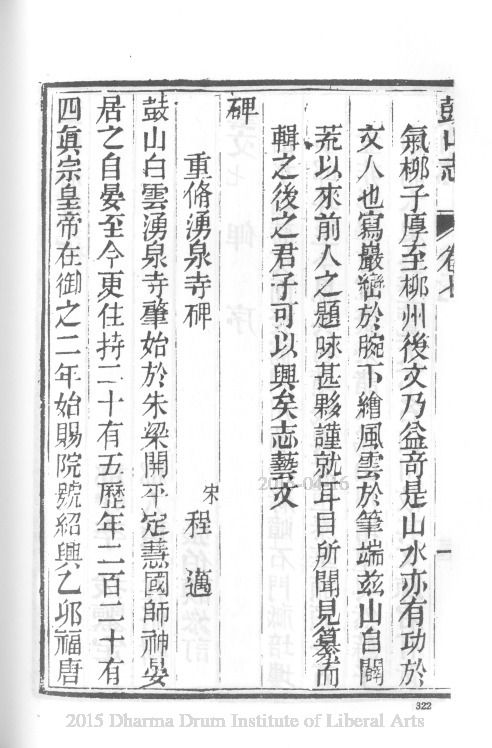 鼓山志 卷七 一
氣柳子厚至柳州後文乃益竒是山水亦有功於
文人也寫巖巒於腕下繪風雲於筆端兹山自闢
荒以來前人之題咏甚夥謹就耳目所聞見纂而
輯之後之君子可以興矣志藝文
碑
重脩湧泉寺碑
宋 程邁
鼓山白雲湧泉寺肇始於朱梁開平定慧國師神晏
居之自晏至今更住持二十有五歷年二百二十有
四眞宗皇帝在御之二年始賜院號紹興乙卯福唐
322
2015 Dharma Drum Institute of Liberal Arts